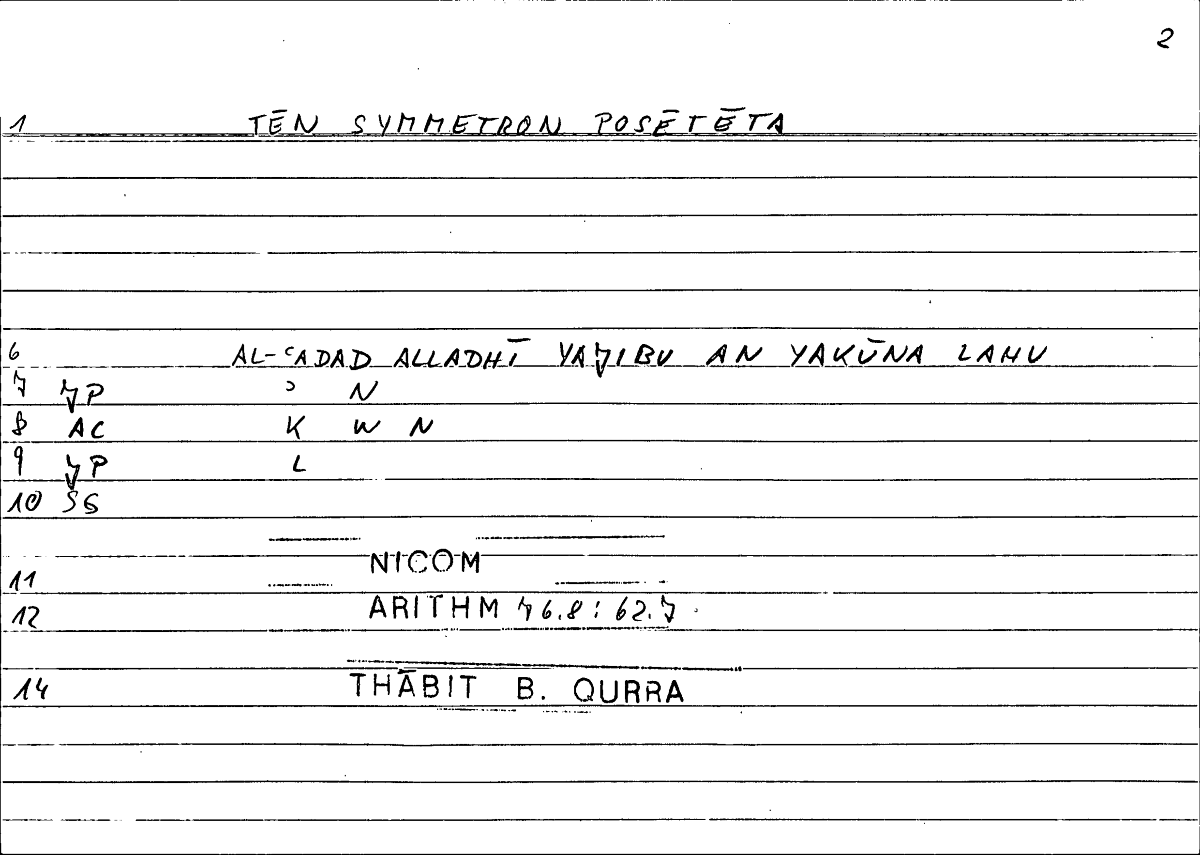 2
1 TĒN SYMMETRON POSĒTĒTA
6 AL-ʿADAD ALLADHĪ YAJIBU AN YAKŪNA LAHU
7 JP ʾ N
8 AC K W N
9 JP L
10 SG
11 NICOM
12 ARITHM 76.8 : 62.7
14 THĀBIT B. QURRA